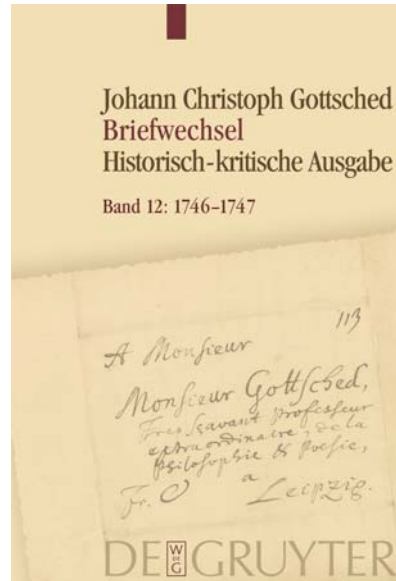 Johann Christoph Gottsched
Briefwechsel
Historisch-kritische Ausgabe
Band 12: 1746–1747
113
A Monsieur
Monsieur Gottsched,
Tres Sçavant Professeur
extraordinaire, de la
Philosophie & Poesie,
a
Fr. Leipzig.
DE W DE G GRUYTER